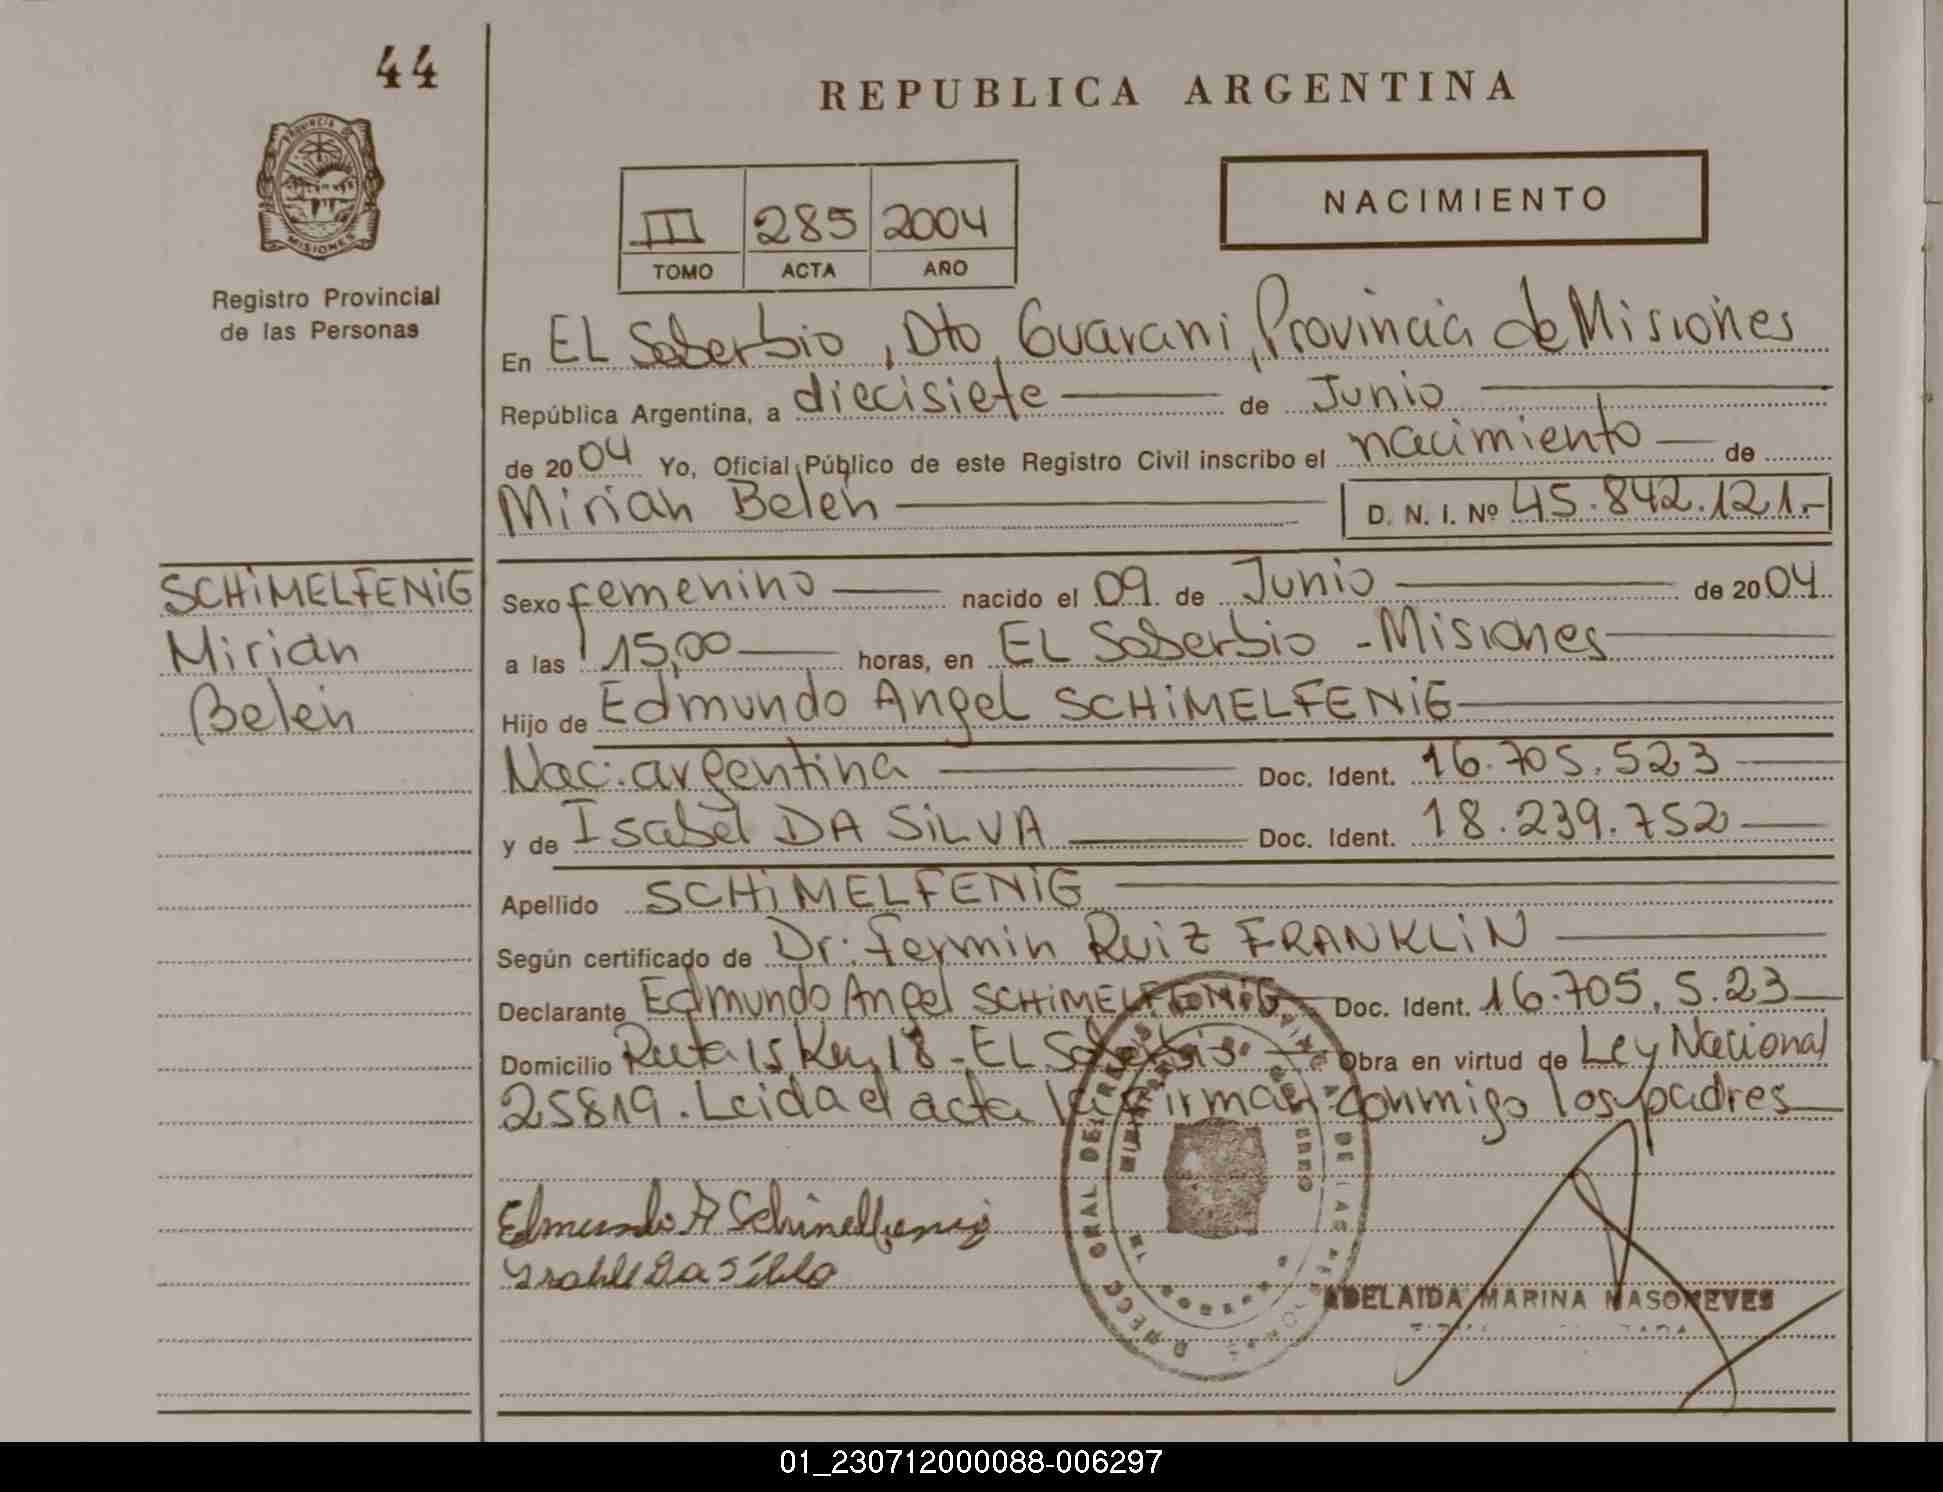 44
REPUBLICA ARGENTINA
PROVINCIA DE
MISIONES
Registro Provincial
de las Personas
III 285 2004
TOMO ACTA AÑO
NACIMIENTO
En EL Soberbio, Dto Guarani, Provincia de Misiones
República Argentina, a diecisiete de Junio
de 2004 Yo, Oficial Público de este Registro Civil inscribo el nacimiento de
Mirian Belen D. N. I. Nº 45.842.121.-
SCHiMELFENiG
Mirian
Belen
Sexo femenino nacido el 09 de Junio de 2004
a las 15,00 horas, en EL Soberbio - Misiones
Hijo de Edmundo Angel SCHiMELFENiG
Nac: argentina Doc. Ident. 16.705.523
y de Isabel DA SiLVA Doc. Ident. 18.239.752
Apellido SCHiMELFENiG
Según certificado de Dr: Fermin Ruiz FRANKLiN
Declarante Edmundo Angel SCHiMELFENiG Doc. Ident. 16.705.523
Domicilio Ruta 15 Km 18 - EL Soberbio Obra en virtud de Ley Nacional
25819. Leida el acta la firman conmigo los padres
Edmundo A Schimelfenig
ADELAIDA MARINA MASONEVES
01_230712000088-006297